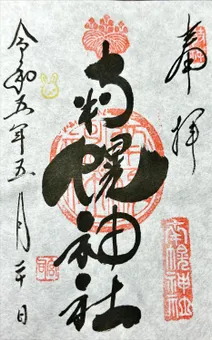 奉拝
南幌神社
南幌神社
令和五年五月 日